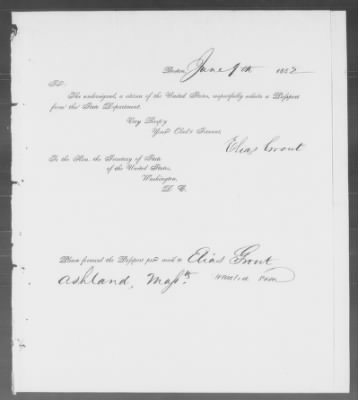 Boston, June 9th 1852
Sir:
The undersigned, a citizen of the United States, respectfully solicits a Passport
from the State Department.
Very Resp'y
Your Obed't Servant,
Elias Grout
To the Hon. the Secretary of State
of the United States,
Washington,
D. C.
Please forward the Passport per mail to Elias Grout
Ashland, Mass.